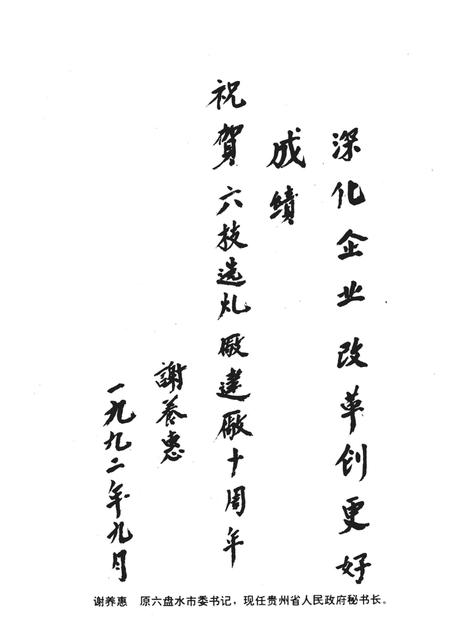 深化企业改革创更好
成绩
祝賀六技选礼厰建厰十周年
謝养惠
一九九二年九月
谢养惠　原六盘水市委书记，现任贵州省人民政府秘书长。